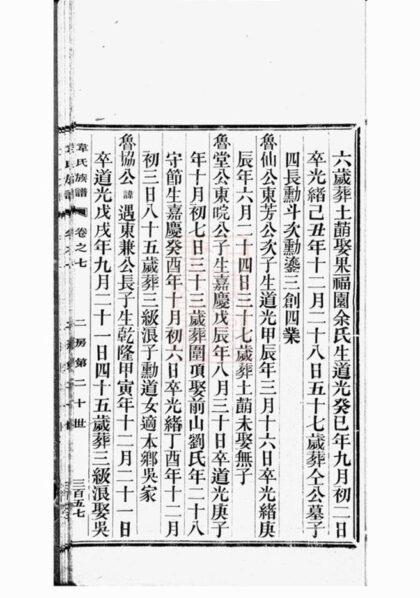 六歲葬土萠娶果福園余氏生道光癸巳年九月初二日
卒光緒己丑年十二月二十八日五十七歲葬仝公墓子
四長勳斗次勳鎏三創四業
魯仙公東芳公次子生道光甲辰年三月十六日卒光緒庚
辰年六月二十四日三十七歲葬土萠未娶無子
魯堂公東皖公子生嘉慶戊辰年八月三十日卒道光庚子
年十月初七日三十三歲葬圍項娶前山劉氏年二十八
守節生嘉慶癸酉年十月初六日卒光緒丁酉年十二月
初三日八十五歲葬三級浪子勳道女適本鄉吳家
魯協公諱遇東兼公長子生乾隆甲寅年十二月二十一日
卒道光戊戌年九月二十一日四十五歲葬三級浪娶吳
韋氏族譜 卷之七 二房第二十世 三百五七